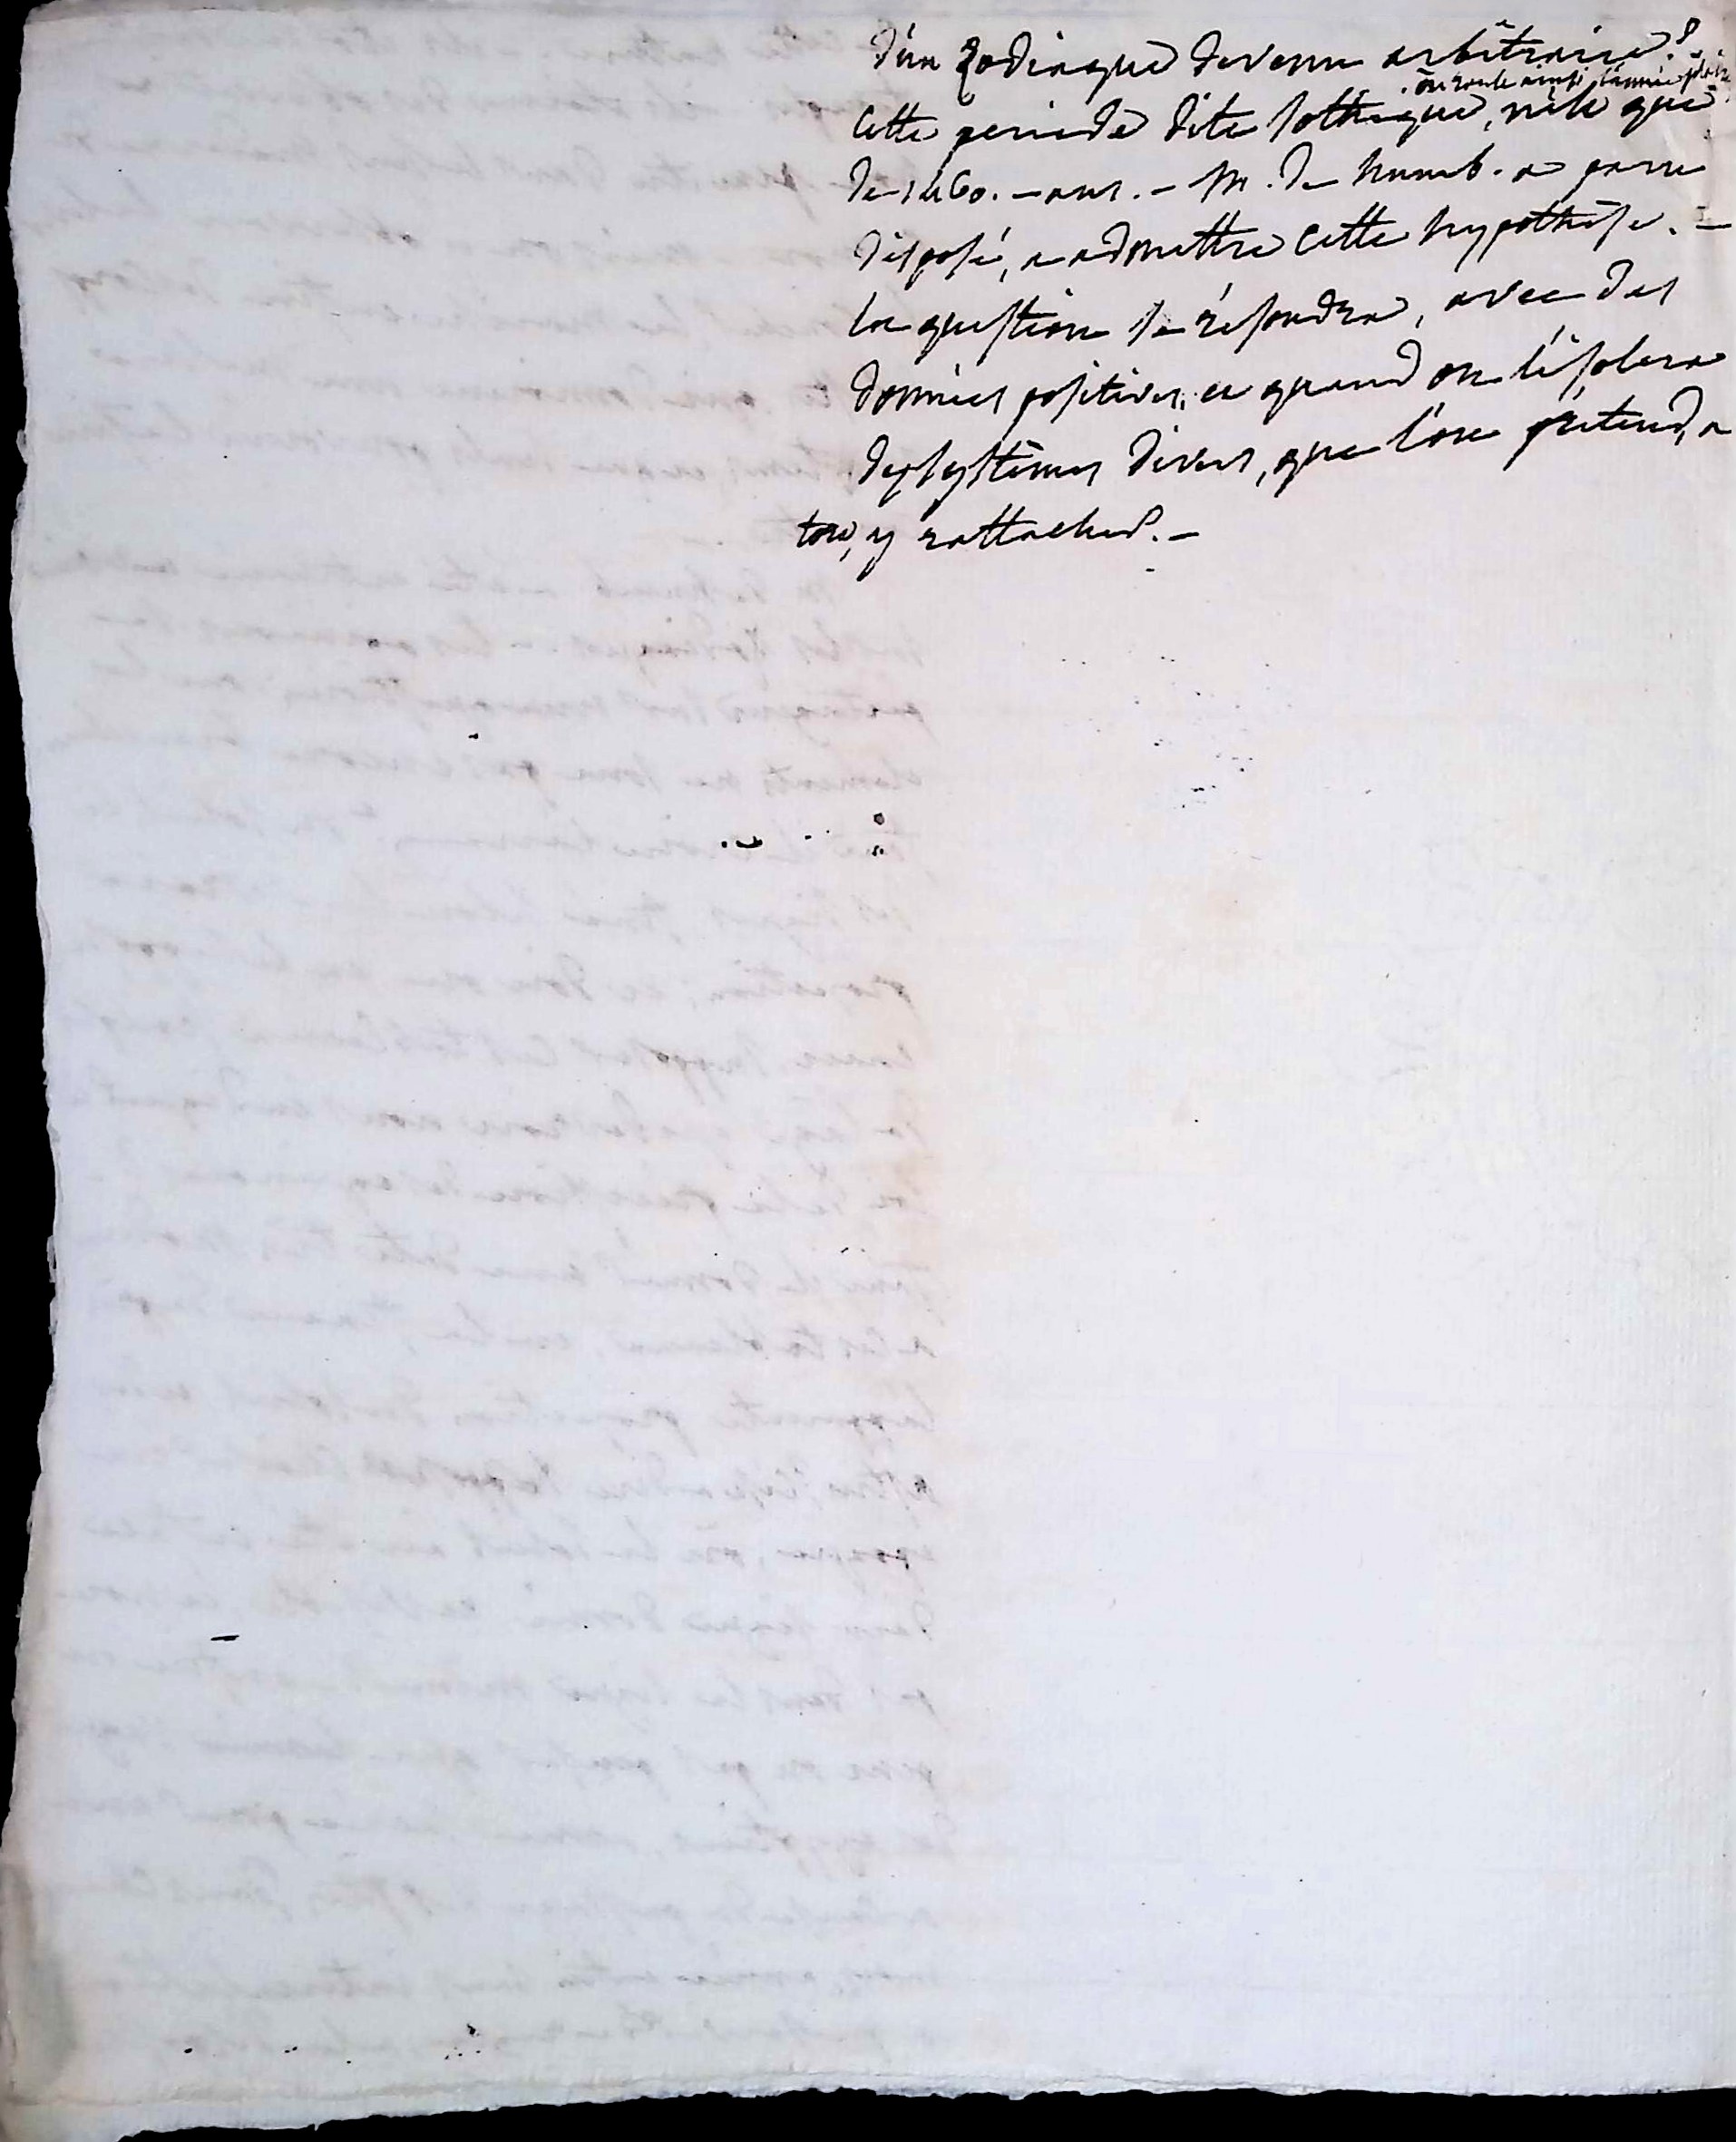 d'un Zodiaque devenu arbitraire?
. on roule ainsi l'année
Cette periode dite sothiaque, n'est que
de 1460. - ans. - M. de humb. a paru
disposé, a admettre cette hypothèse. -
la question se résoudra, avec des
données positives, et quand on l'isolera
des systèmes divers, que l'on prétend, a
tort, y rattacher. -